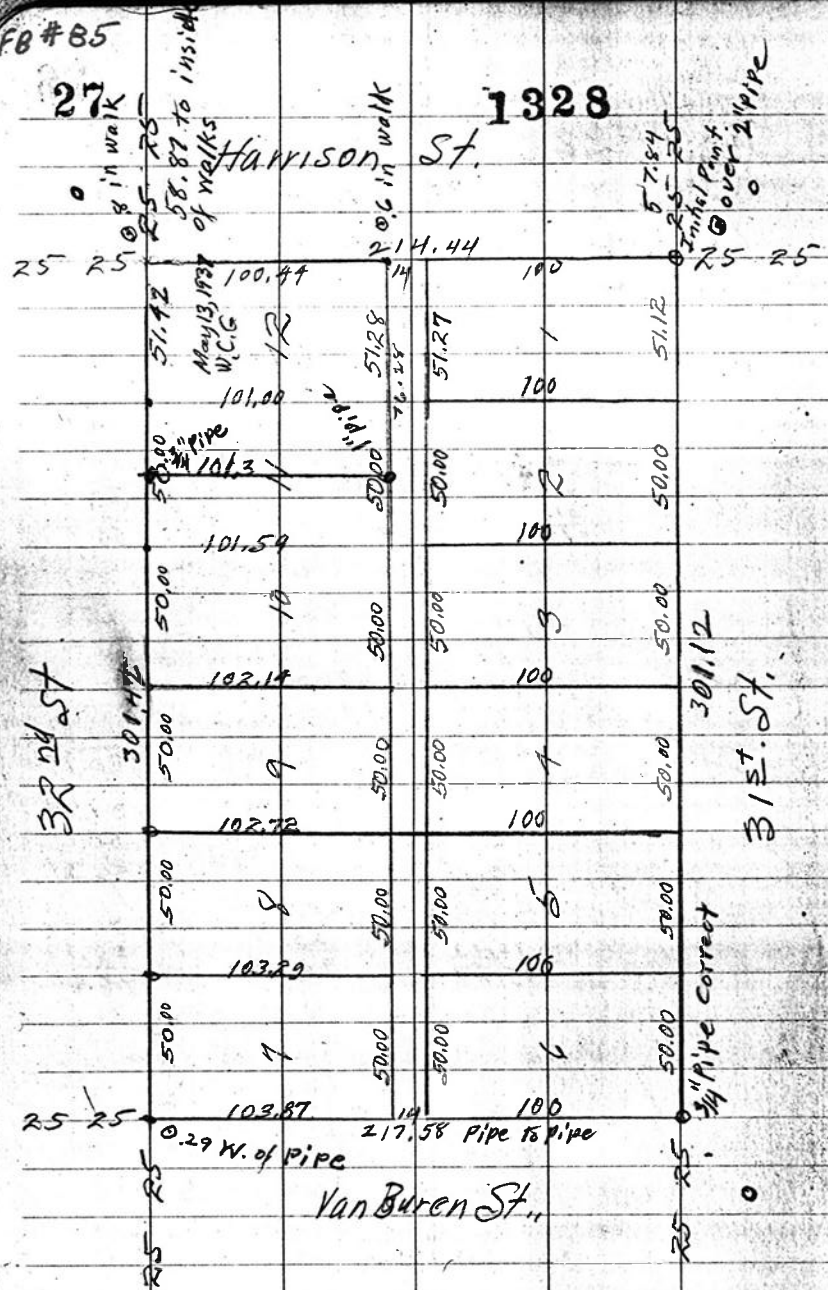 FB #85
27
1328
.8 in walk
25 25
58.87 to inside
of walks
Harrison St.
0.6 in walk
57.84
25 25
Initial Point
over 2" pipe
214.44
25 25
100.44
14
100
25 25
51.42
May 13, 1937
W.C.G
12
51.28
76.28
51.27
1
51.12
101.00
1" pipe
100
3/4" pipe
50.00
101.3
11
50.00
50.00
2
50.00
101.59
100
50.00
10
50.00
50.00
3
50.00
32nd St
301.42
102.14
100
301.12
31st. St.
50.00
9
50.00
50.00
4
50.00
102.72
100
50.00
8
50.00
50.00
5
50.00
103.29
100
50.00
7
50.00
50.00
6
50.00
3/4" Pipe correct
25 25
103.87
14
100
.29 W. of pipe
217.58 Pipe to pipe
25 25
Van Buren St.
25 25